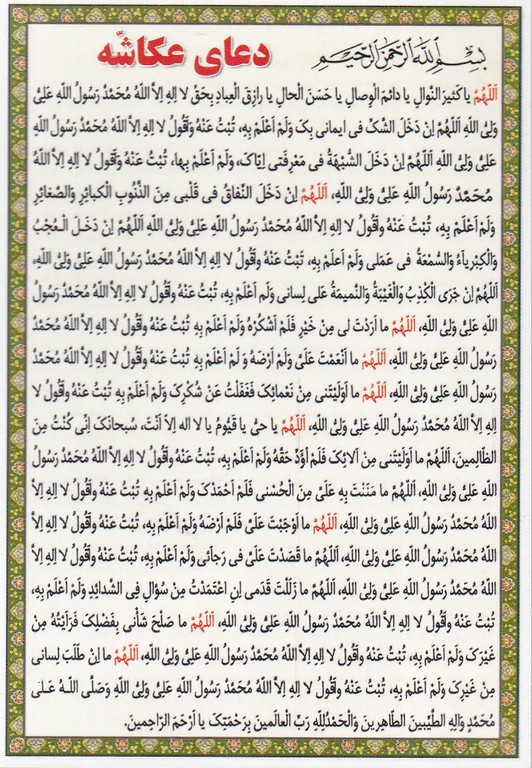 بِسْمِ اللهِ الرَّحْمنِ الرَّحيمِ
دعای عکاشّه
اَللّهُمَّ یا کَثیرَ النَّوالِ یا دائِمَ الْوِصالِ یا حَسَنَ الْحالِ یا رازِقَ الْعِبادِ بِحَقِّ لا اِلهَ اِلاَّ اللهُ مُحَمَّدٌ رَسُولُ اللهِ عَلِیٌّ
وَلِیُّ اللهِ اَللّهُمَّ اِنْ دَخَلَ الشَّکُّ فی ایمانی بِکَ وَلَمْ اَعْلَمْ بِهِ، تُبْتُ عَنْهُ وَاَقُولُ لا اِلهَ اِلاَّ اللهُ مُحَمَّدٌ رَسُولُ اللهِ
عَلِیٌّ وَلِیُّ اللهِ اَللّهُمَّ اِنْ دَخَلَ الشُّبْهَةُ فی مَعْرِفَتی اِیّاکَ، وَلَمْ اَعْلَمْ بِها، تُبْتُ عَنْهُ وَاَقُولُ لا اِلهَ اِلاَّ اللهُ
مُحَمَّدٌ رَسُولُ اللهِ عَلِیٌّ وَلِیُّ اللهِ، اَللّهُمَّ اِنْ دَخَلَ النِّفاقُ فی قَلْبی مِنَ الذُّنُوبِ الْکَبائِرِ وَالصَّغائِرِ
وَلَمْ اَعْلَمْ بِهِ، تُبْتُ عَنْهُ وَاَقُولُ لا اِلهَ اِلاَّ اللهُ مُحَمَّدٌ رَسُولُ اللهِ عَلِیٌّ وَلِیُّ اللهِ اَللّهُمَّ اِنْ دَخَلَ الْعُجْبُ
وَالْکِبْرِیآءُ وَالسُّمْعَةُ فی عَمَلی وَلَمْ اَعْلَمْ بِهِ، تُبْتُ عَنْهُ وَاَقُولُ لا اِلهَ اِلاَّ اللهُ مُحَمَّدٌ رَسُولُ اللهِ عَلِیٌّ وَلِیُّ اللهِ،
اَللّهُمَّ اِنْ جَرَی الْکِذْبُ وَالْغَیْبَةُ وَالنَّمیمَةُ عَلی لِسانی وَلَم اَعْلَمْ بِهِ، تُبْتُ عَنْهُ وَاَقُولُ لا اِلهَ اِلاَّ اللهُ مُحَمَّدٌ رَسُولُ
اللهِ عَلِیٌّ وَلِیُّ اللهِ، اَللّهُمَّ ما اَرَدْتَ لی مِنْ خَیْرٍ فَلَمْ اَشْکُرْهُ وَلَمْ اَعْلَمْ بِهِ تُبْتُ عَنْهُ وَاَقُولُ لا اِلهَ اِلاَّ اللهُ مُحَمَّدٌ
رَسُولُ اللهِ عَلِیٌّ وَلِیُّ اللهِ، اَللّهُمَّ ما اَنْعَمْتَ عَلَیَّ وَلَمْ اَرْضَهُ وَ لَمْ اَعْلَمْ بِهِ، تُبْتُ عَنْهُ وَاَقُولُ لا اِلهَ اِلاَّ اللهُ مُحَمَّدٌ
رَسُولُ اللهِ عَلِیٌّ وَلِیُّ اللهِ، اَللّهُمَّ ما اَوْلَیْتَنی مِنْ نَعْمائِکَ فَغَفَلْتُ عَنْ شُکْرِکَ وَلَمْ اَعْلَمْ بِهِ تُبْتُ عَنْهُ وَاَقُولُ لا
اِلهَ اِلاَّ اللهُ مُحَمَّدٌ رَسُولُ اللهِ عَلِیٌّ وَلِیُّ اللهِ، اَللّهُمَّ یا حَیُّ یا قَیُّومُ یا لا اله اِلاّ اَنْتَ، سُبحانَکَ اِنّی کُنْتُ مِنَ
الظّالِمینَ، اَللّهُمَّ ما اَوْلَیْتَنی مِنْ آلائِکَ فَلَمْ اُؤَدِّ حَقَّهُ وَلَمْ اَعْلَمْ بِهِ، تُبْتُ عَنْهُ وَاَقُولُ لا اِلهَ اِلاَّ اللهُ مُحَمَّدٌ رَسُولُ
اللهِ عَلِیٌّ وَلِیُّ اللهِ، اَللّهُمَّ ما مَنَنْتَ بِهِ عَلَیَّ مِنَ الْحُسْنی فَلَمْ اَحْمَدْکَ وَلَمْ اَعْلَمْ بِهِ تُبْتُ عَنْهُ وَاَقُولُ لا اِلهَ اِلاَّ
اللهُ مُحَمَّدٌ رَسُولُ اللهِ عَلِیٌّ وَلِیُّ اللهِ، اَللّهُمَّ ما اَوْجَبْتَ عَلَیَّ فَلَمْ اَرْضَهُ وَلَمْ اَعْلَمْ بِهِ، تُبْتُ عَنْهُ وَاَقُولُ لا اِلهَ اِلاَّ
اللهُ مُحَمَّدٌ رَسُولُ اللهِ عَلِیٌّ وَلِیُّ اللهِ، اَللّهُمَّ ما قَصَدْتَ عَلَیَّ فی رَجآئی وَلَمْ اَعْلَمْ بِهِ، تُبْتُ عَنْهُ وَاَقُولُ لا اِلهَ اِلاَّ
اللهُ مُحَمَّدٌ رَسُولُ اللهِ عَلِیٌّ وَلِیُّ اللهِ، اَللّهُمَّ ما زَلَلْتَ قَدَمی اِنِ اعْتَمَدْتُ مِنْ سُؤالٍ فِی الشَّدائِدِ وَلَمْ اَعْلَمْ بِهِ،
تُبْتُ عَنْهُ وَاَقُولُ لا اِلهَ اِلاَّ اللهُ مُحَمَّدٌ رَسُولُ اللهِ عَلِیٌّ وَلِیُّ اللهِ، اَللّهُمَّ ما صَلَحَ شَأْنی بِفَضْلِکَ فَرَاَیْتُهُ مِنْ
غَیْرِکَ وَلَمْ اَعْلَمْ بِهِ، تُبْتُ عَنْهُ وَاَقُولُ لا اِلهَ اِلاَّ اللهُ مُحَمَّدٌ رَسُولُ اللهِ عَلِیٌّ وَلِیُّ اللهِ، اَللّهُمَّ ما اِنْ طَلَبَ لِسانی
مِنْ غَیْرِکَ وَلَمْ اَعْلَمْ بِهِ، تُبْتُ عَنْهُ وَاَقُولُ لا اِلهَ اِلاَّ اللهُ مُحَمَّدٌ رَسُولُ اللهِ عَلِیٌّ وَلِیُّ اللهِ وَصَلَّی اللهُ عَلی
مُحَمَّدٍ وَالِهِ الطَّیِّبینَ الطّاهِرینَ وَالْحَمْدُلِلّهِ رَبِّ الْعالَمینَ بِرَحْمَتِکَ یا اَرْحَمَ الرّاحِمینَ.